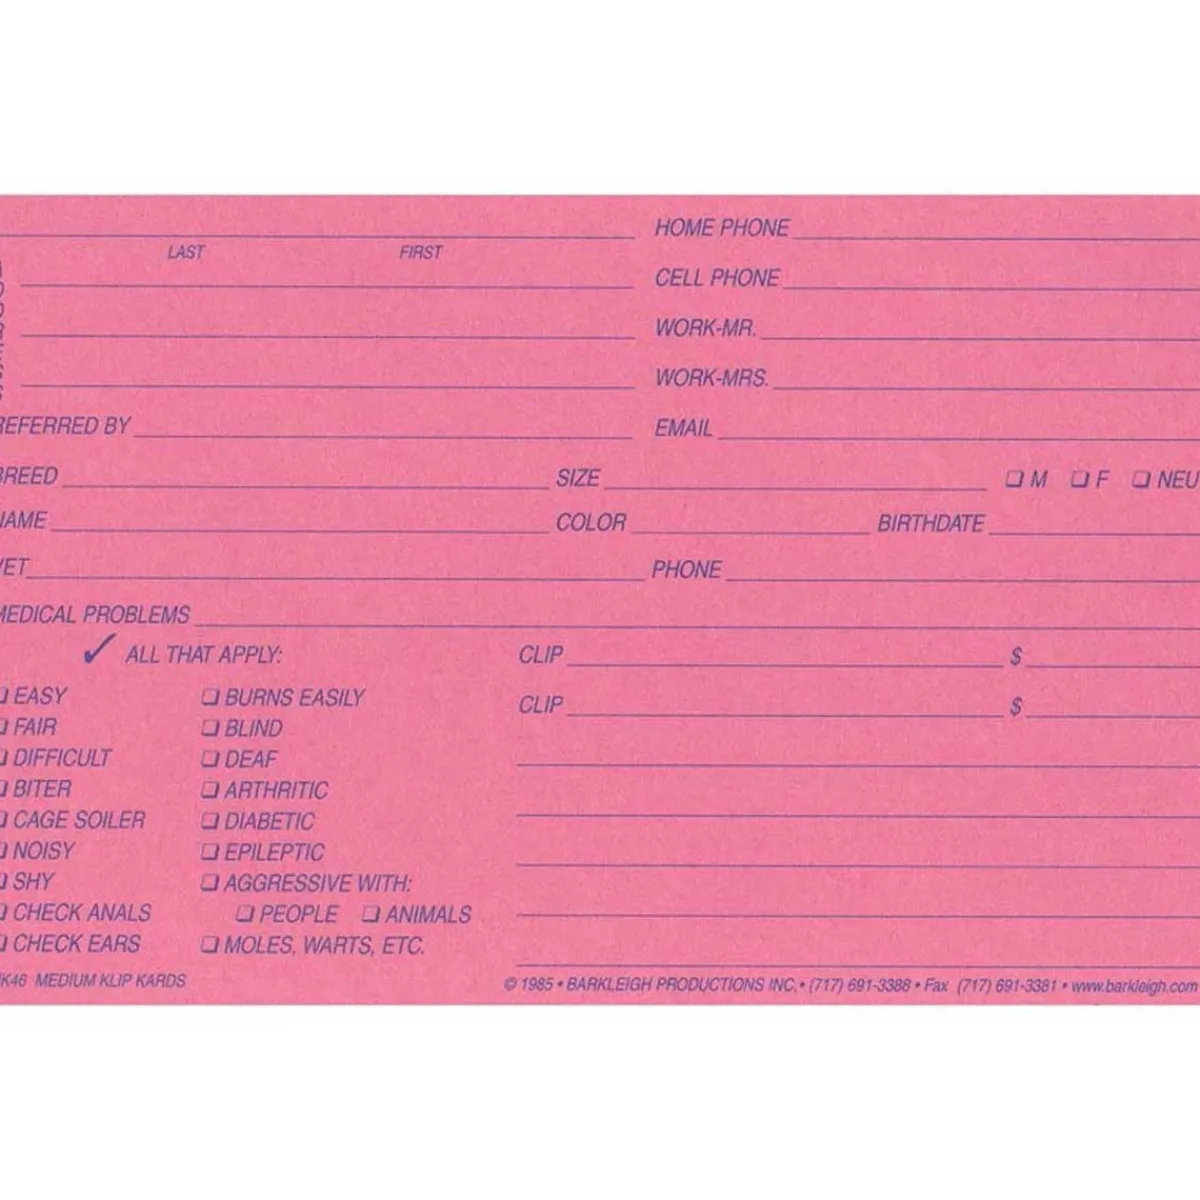 HOME PHONE
LAST FIRST
CELL PHONE
WORK-MR.
WORK-MRS.
REFERRED BY EMAIL
BREED SIZE ❏ M ❏ F ❏ NEU
NAME COLOR BIRTHDATE
VET PHONE
MEDICAL PROBLEMS
✓ ALL THAT APPLY: CLIP $
❏ EASY ❏ BURNS EASILY CLIP $
❏ FAIR ❏ BLIND
❏ DIFFICULT ❏ DEAF
❏ BITER ❏ ARTHRITIC
❏ CAGE SOILER ❏ DIABETIC
❏ NOISY ❏ EPILEPTIC
❏ SHY ❏ AGGRESSIVE WITH:
❏ CHECK ANALS ❏ PEOPLE ❏ ANIMALS
❏ CHECK EARS ❏ MOLES, WARTS, ETC.
K46 MEDIUM KLIP KARDS © 1985 • BARKLEIGH PRODUCTIONS INC. • (717) 691-3388 • Fax (717) 691-3381 • www.barkleigh.com